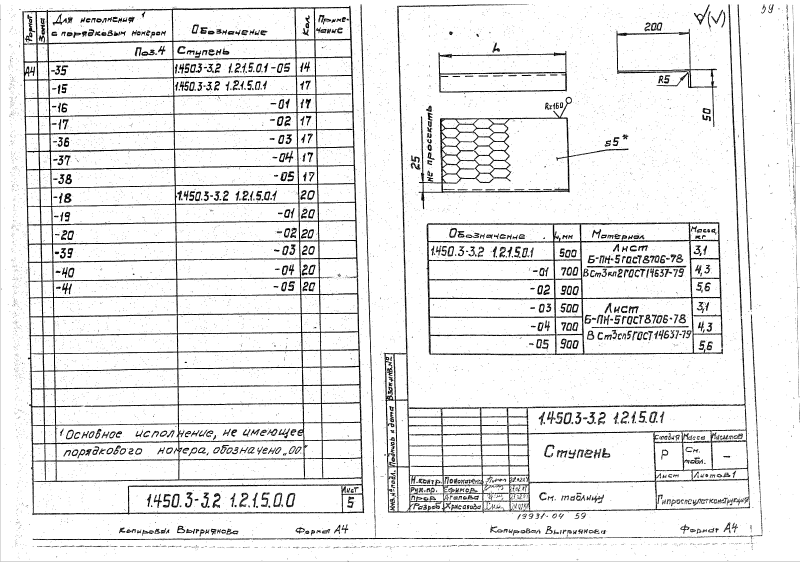 Формат
Зона
Для исполнения ¹
с порядковым номером
Обозначение
Кол
Приме-
чание
Поз.4 Ступень
А4 -35 1.450.3-3.2 1.2.1.5.0.1 -05 14
-15 1.450.3-3.2 1.2.1.5.0.1 17
-16 -01 17
-17 -02 17
-36 -03 17
-37 -04 17
-38 -05 17
-18 1.450.3-3.2 1.2.1.5.0.1 20
-19 -01 20
-20 -02 20
-39 -03 20
-40 -04 20
-41 -05 20
¹ Основное исполнение, не имеющее
порядкового номера, обозначено „00"
1.450.3-3.2 1.2.1.5.0.0
Лист
5
Копировал Выгриянова Формат А4
59
√(√)
L
200
R5
50
Rz160
25
не просекать
s5*
Обозначение L, мм Материал Масса, кг
1.450.3-3.2 1.2.1.5.0.1 500 Лист 3,1
Б-ПН-5 ГОСТ 8706-78
-01 700 В Ст3кп2 ГОСТ 14637-79 4,3
-02 900 5,6
-03 500 Лист 3,1
Б-ПН-5 ГОСТ 8706-78
-04 700 4,3
В Ст3сп5 ГОСТ 14637-79
-05 900 5,6
Взам.инв.№
Подпись и дата
Инв.№подл.
1.450.3-3.2 1.2.1.5.0.1
Ступень
Стадия Масса Масштаб
Р См. табл. –
Лист Листов 1
Н.контр.
Рук.пр. Ефимов
Пров. Агапова
Разраб. Хрисанова
См. таблицу
Гипроспецлегконструкция
19931-04 59
Копировал Выгриянова Формат А4